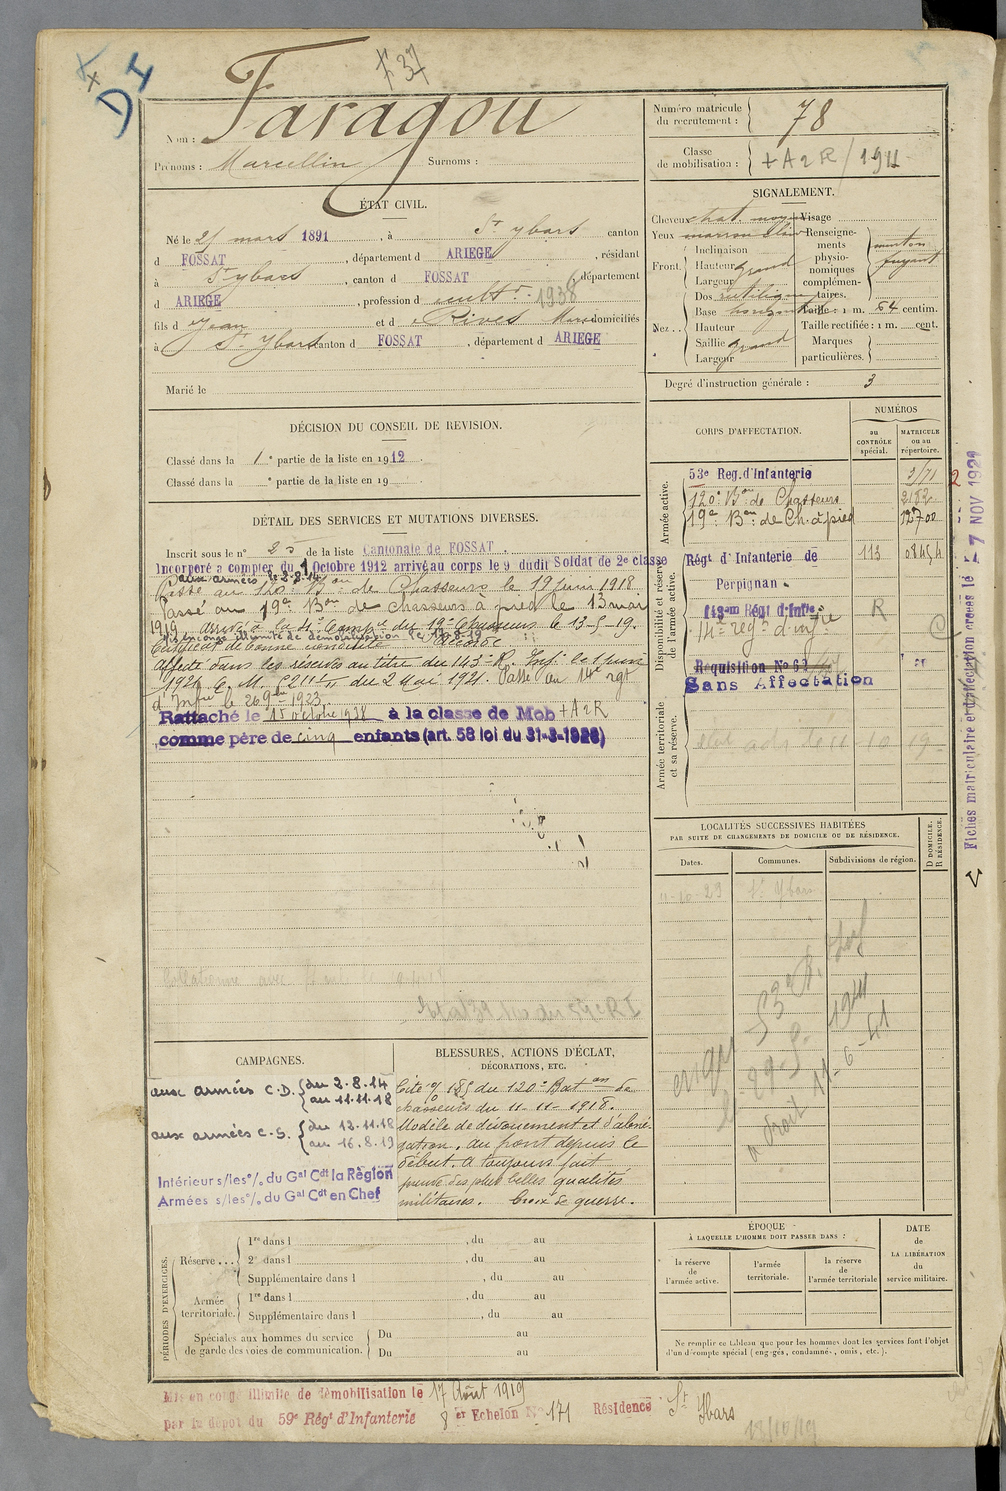 DI
F 37
Nom : Faragou
Prénoms : Marcellin Surnoms :
Numéro matricule du recrutement : 78
Classe de mobilisation : + A 2 R / 1911
ÉTAT CIVIL.
Né le 21 mars 1891, à St ybars canton
d FOSSAT, département d ARIEGE, résidant
à St ybars, canton d FOSSAT, département
d ARIEGE, profession d cultr. 1938
fils d Jean et d Rives Marie domiciliés
à St Ybars canton d FOSSAT, département d ARIEGE
Marié le
SIGNALEMENT.
Cheveux chat moyen Visage
Yeux marron clair Renseigne-
ments
physio-
nomiques
complémen-
taires. menton
fuyant
Front. Inclinaison
Hauteur grand
Largeur
Nez . . Dos rectiligne
Base horizontale Taille : 1 m. 64 centim.
Hauteur Taille rectifiée : 1 m. cent.
Saillie grand Marques
Largeur particulières.
Degré d'instruction générale : 3
DÉCISION DU CONSEIL DE REVISION.
Classé dans la 1e partie de la liste en 1912.
Classé dans la e partie de la liste en 19
DÉTAIL DES SERVICES ET MUTATIONS DIVERSES.
Inscrit sous le n° 25 de la liste Cantonale de FOSSAT.
Incorporé a compter du 1 Octobre 1912 arrivé au corps le 9 dudit Soldat de 2e classe
aux armées le 2-8-14
Passé au 120e Bon de Chasseurs le 19 juin 1918
Passé au 19e Bon de chasseurs à pied le 13 mai
1919 arrivé à la 4e Compie du 19e Chasseurs le 13-5-19.
Mis en congé illimité de démobilisation le 17-8-19
Certificat de bonne conduite accordé
Affecté dans les réserves au titre du 143e R. Inf. le 1 juin
1921 C. M. du 2 Mai 1921. Passé au 14e rgt
d'Infie le 26 9bre 1923.
Rattaché le 15 octobre 1938 à la classe de Mob + A 2 R
comme père de cinq enfants (art. 58 loi du 31-3-1928)
CORPS D'AFFECTATION.
NUMÉROS
au CONTRÔLE spécial.
MATRICULE ou au répertoire.
Armée active.
53e Reg. d'Infanterie 2171
120e Bon de Chasseurs 2182
19e Bon de Ch. à pied 12700
Disponibilité et réserve de l'armée active.
Régt d'Infanterie de Perpignan 113 08454
143em Régt d'Inftie
14e regt d'infie R
Requisition No 62
Sans Affectation
Armée territoriale et sa réserve.
Fiches matriculaire et d'affectation créées le - 7 NOV 1929
LOCALITÉS SUCCESSIVES HABITÉES
PAR SUITE DE CHANGEMENTS DE DOMICILE OU DE RÉSIDENCE.
Dates. Communes. Subdivisions de région. D DOMICILE. R RÉSIDENCE.
11-10-29 St Ybars
11-6-41
CAMPAGNES.
aux armées C.D. du 2.8.14
au 11.11.18
aux armées C.S. du 12.11.18
au 16.8.19
Intérieur s/les o/. du Gal Cdt la Région
Armées s/les o/. du Gal Cdt en Chef
BLESSURES, ACTIONS D'ÉCLAT,
DÉCORATIONS, ETC.
Cité o/ 185 du 120e Baton de
chasseurs du 11-11-1918.
Modèle de dévouement et d'abné-
gation, au front depuis le
début. A toujours fait
preuve des plus belles qualités
militaires. Croix de guerre.
PÉRIODES D'EXERCICES.
Réserve . . . 1re dans l , du au
2e dans l , du au
Supplémentaire dans l , du au
Armée territoriale. 1re dans l , du au
Supplémentaire dans l , du au
Spéciales aux hommes du service
de garde des voies de communication. Du au
Du au
ÉPOQUE
À LAQUELLE L'HOMME DOIT PASSER DANS :
la réserve de l'armée active.
l'armée territoriale.
la réserve de l'armée territoriale
DATE de LA LIBÉRATION du service militaire.
Ne remplir ce tableau que pour les hommes dont les services font l'objet
d'un décompte spécial (engagés, condamnés, omis, etc.).
Mis en congé illimité de démobilisation le 17 Août 1919
par le dépot du 59e Régt d'Infanterie 8 er Echelon No 171 Résidence St Ybars